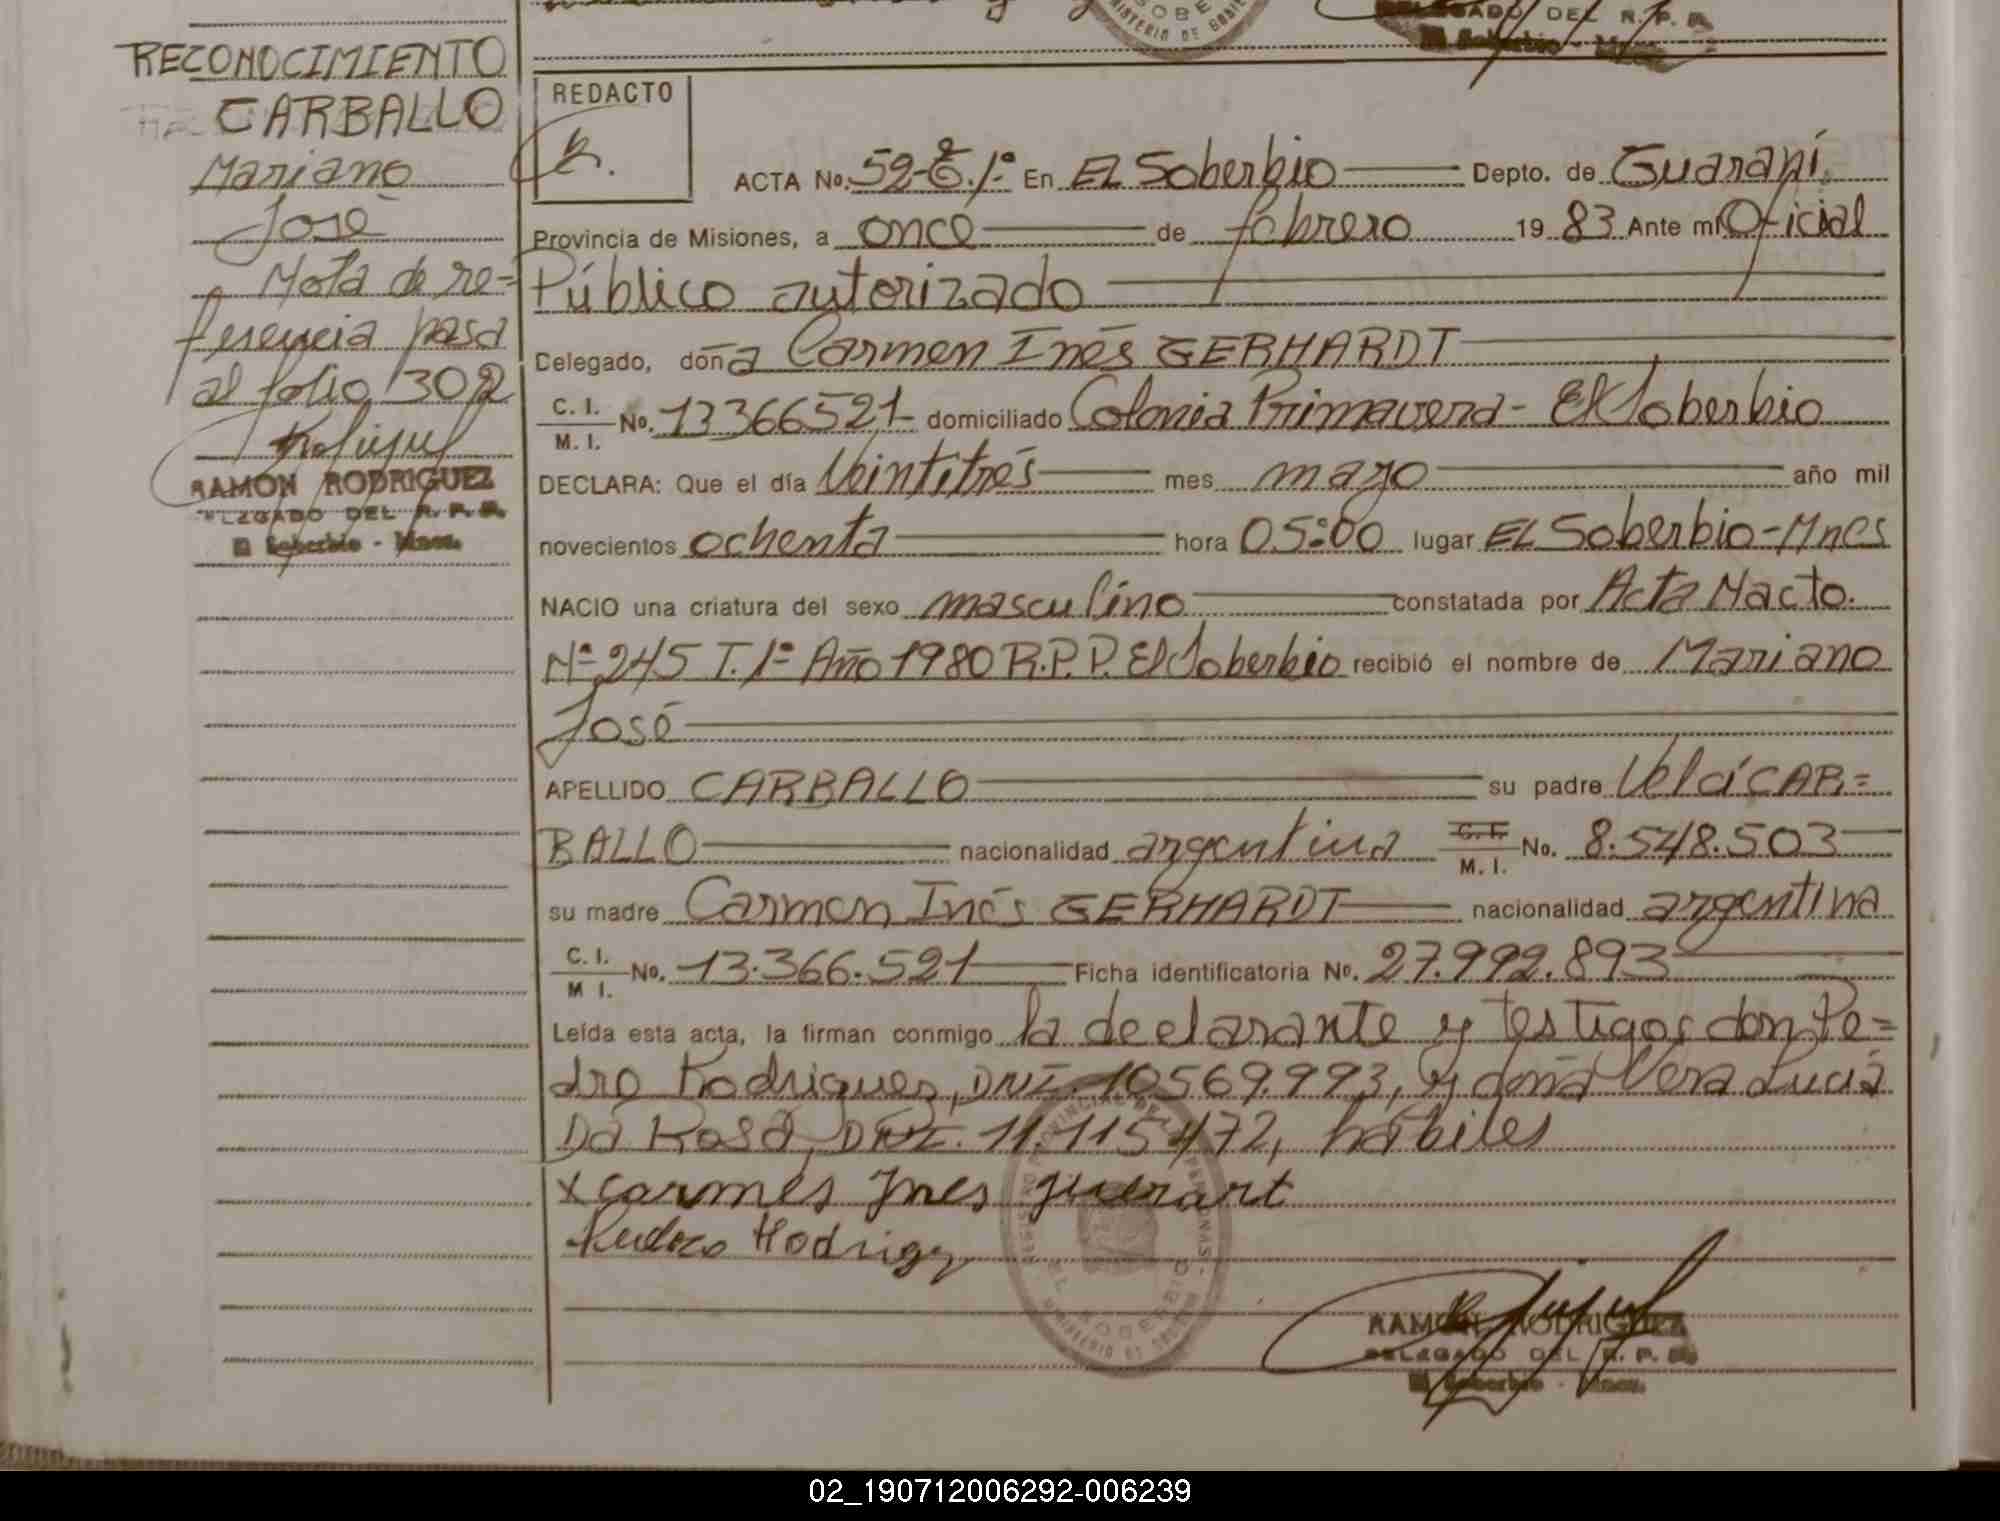 RECONOCIMIENTO
CARBALLO
Mariano
José
Nota de re=
ferencia pasa
al folio 302
RAMON RODRIGUEZ
DELEGADO DEL R. P. P.
El Soberbio - Mnes.
DELEGADO DEL R. P. P.
El Soberbio - Mnes.
REDACTO
ACTA No. 52 - T. 1º En EL Soberbio Depto. de Guaraní
Provincia de Misiones, a once de febrero 19 83 Ante mi Oficial
Público autorizado
Delegado, doña Carmen Inés GERHARDT
C. I. M. I. No. 13366521 domiciliado Colonia Primavera - El Soberbio
DECLARA: Que el día Veintitrés mes mayo año mil
novecientos ochenta hora 05:00 lugar EL Soberbio - Mnes
NACIO una criatura del sexo masculino constatada por Acta Nacto.
Nº 245 T. 1º Año 1980 R.P.P. El Soberbio recibió el nombre de Mariano
José
APELLIDO CARBALLO su padre Velcí CAR=
BALLO nacionalidad argentina C. I. M. I. No. 8.548.503
su madre Carmen Inés GERHARDT nacionalidad argentina
C. I. M I. No. 13.366.521 Ficha identificatoria No. 27.992.893
Leída esta acta, la firman conmigo la declarante y testigos don Pe=
dro Rodrigues, DNI. 10569.993, y doña Vera Lucia
Da Rosa, DNI. 11.115472, hábiles
x carmes Jnes guerart
Pedro Rodrigz
RAMON RODRIGUEZ
DELEGADO DEL R. P. P.
El Soberbio - Mnes.
02_190712006292-006239